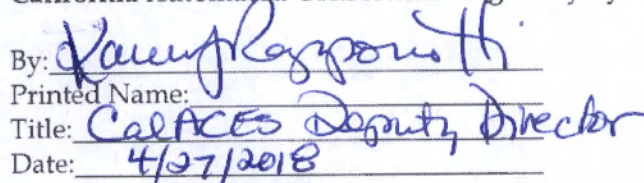 By: Karen J Rapponotti
Printed Name:
Title: CalACES Deputy Director
Date: 4/27/2018